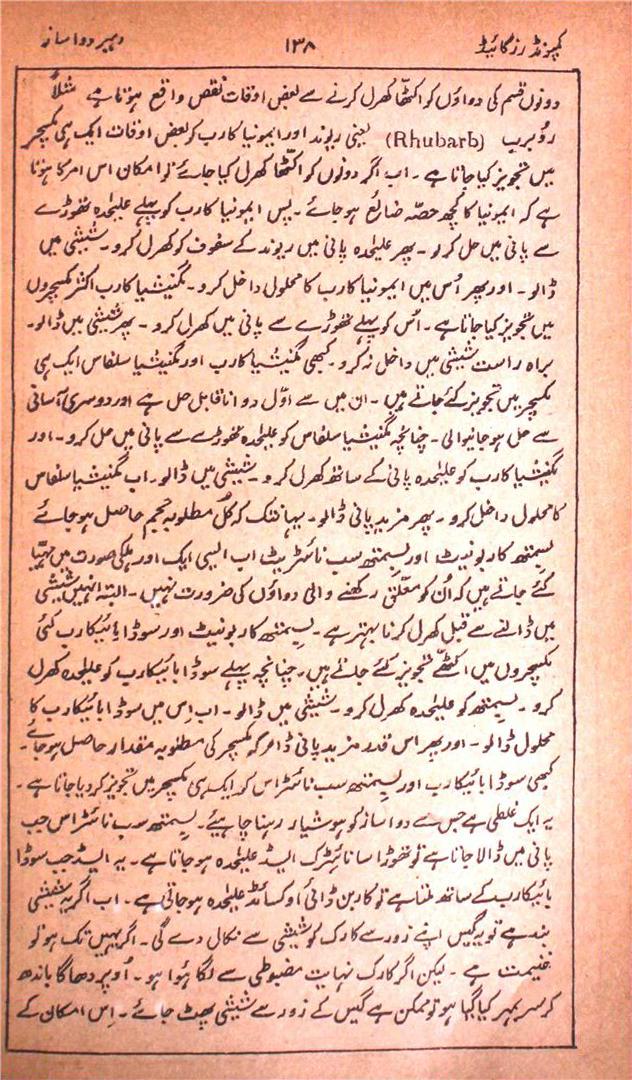 کمپونڈرز گائیڈ ۱۳۸ رہبر دواسازی
دونوں قسم کی دواؤں کو اکٹھا کھرل کرنے سے بعض اوقات نقص واقع ہوتا ہے مثلاً
روبرب (Rhubarb) یعنی ریوند اور ایمونیا کارب کو بعض اوقات ایک ہی مکسچر
میں تجویز کیا جاتا ہے ۔ اب اگر دونوں کو اکٹھا کھرل کیا جائے تو امکان اس امر کا ہوتا
ہے کہ ایمونیا کا کچھ حصہ ضائع ہو جائے ۔ پس ایمونیا کارب کو پہلے علیحدہ تھوڑے
سے پانی میں حل کر لو ۔ پھر علیحدہ پانی میں ریوند کے سفوف کو کھرل کرو ۔ شیشی میں
ڈالو ۔ اور پھر اُس میں ایمونیا کارب کا محلول داخل کرو ۔ مگنیشیا کارب اکثر مکسچروں
میں تجویز کیا جاتا ہے ۔ اُس کو پہلے تھوڑے سے پانی میں کھرل کرو ۔ پھر شیشی میں ڈالو ۔
براہ راست شیشی میں داخل نہ کرو ۔ کبھی مگنیشیا کارب اور مگنیشیا سلفاس ایک ہی
مکسچر میں تجویز کئے جاتے ہیں ۔ ان میں سے اوّل دوا ناقابل حل ہے اور دوسری آسانی
سے حل ہو جانیوالی ۔ چنانچہ مگنیشیا سلفاس کو علیحدہ تھوڑے سے پانی میں حل کرو ۔ اور
مگنیشیا کارب کو علیحدہ پانی کے ساتھ کھرل کرو ۔ شیشی میں ڈالو ۔ اب مگنیشیا سلفاس
کا محلول داخل کرو ۔ پھر مزید پانی ڈالو ۔ یہانتک کہ کُل مطلوبہ حجم حاصل ہو جائے
بسیمتھ کاربونیٹ اور بسیمتھ سب نائٹریٹ اب ایسی ایک اور ہلکی صورت میں مہیّا
کئے جاتے ہیں کہ اُن کو معلّق رکھنے والی دواؤں کی ضرورت نہیں ۔ البتہ انہیں شیشی
میں ڈالنے سے قبل کھرل کرنا بہتر ہے ۔ بسیمتھ کاربونیٹ اور سوڈا بائیکارب کئی
مکسچروں میں اکٹھے تجویز کئے جاتے ہیں ۔ چنانچہ پہلے سوڈا بائیکارب کو علیحدہ کھرل
کرو ۔ بسیمتھ کو علیحدہ کھرل کرو ۔ شیشی میں ڈالو ۔ اب اِس میں سوڈا بائیکارب کا
محلول ڈالو ۔ اور پھر اس قدر مزید پانی ڈالو کہ مکسچر کی مطلوبہ مقدار حاصل ہو جائے ۔
کبھی سوڈا بائیکارب اور بسیمتھ سب نائٹراس کو ایک ہی مکسچر میں تجویز کر دیا جاتا ہے ۔
یہ ایک غلطی ہے جس سے دواساز کو ہوشیار رہنا چاہیئے ۔ بسیمتھ سب نائٹراس جب
پانی میں ڈالا جاتا ہے تو تھوڑا سا نائیٹرک ایسڈ علیحدہ ہو جاتا ہے ۔ یہ ایسڈ جب سوڈا
بائیکارب کے ساتھ ملتا ہے تو کاربن ڈائی اوکسائڈ علیحدہ ہو جاتی ہے ۔ اب اگر یہ شیشی
بند ہے تو یہ گیس اپنے زور سے کارک کو شیشی سے نکال دے گی ۔ اگر یہیں تک ہو تو
غنیمت ہے ۔ لیکن اگر کارک نہایت مضبوطی سے لگا ہوا ہو ۔ اُوپر دھاگا باندھ
کر سر بمہر کیا گیا ہو تو ممکن ہے گیس کے زور سے شیشی پھٹ جائے ۔ اِس امکان کے